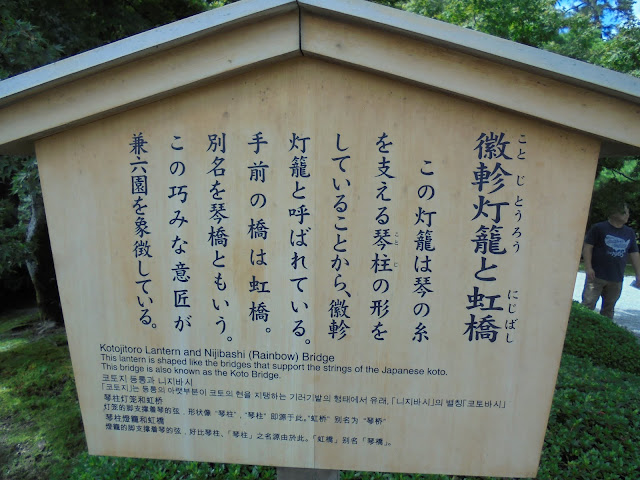 ことじとうろう にじばし
徽軫灯籠と虹橋
この灯籠は琴の糸
ことじ
を支える琴柱の形を
していることから、徽軫
灯籠と呼ばれている。
手前の橋は虹橋。
別名を琴橋ともいう。
この巧みな意匠が
兼六園を象徴している。
Kotojitoro Lantern and Nijibashi (Rainbow) Bridge
This lantern is shaped like the bridges that support the strings of the Japanese koto.
This bridge is also known as the Koto Bridge.
코토지 등롱과 니지바시
「코토지」는 등롱의 아랫부분이 코토의 현을 지탱하는 기러기발의 형태에서 유래, 「니지바시」의 별칭「코토바시」
琴柱灯笼和虹桥
灯笼的脚支撑着琴的弦，形状像“琴柱”，“琴柱”即源于此。“虹桥”别名为“琴桥”
琴柱燈籠和虹橋
燈籠的腳支撐著琴的弦，好比琴柱、「琴柱」之名源由於此。「虹橋」別名「琴橋」。